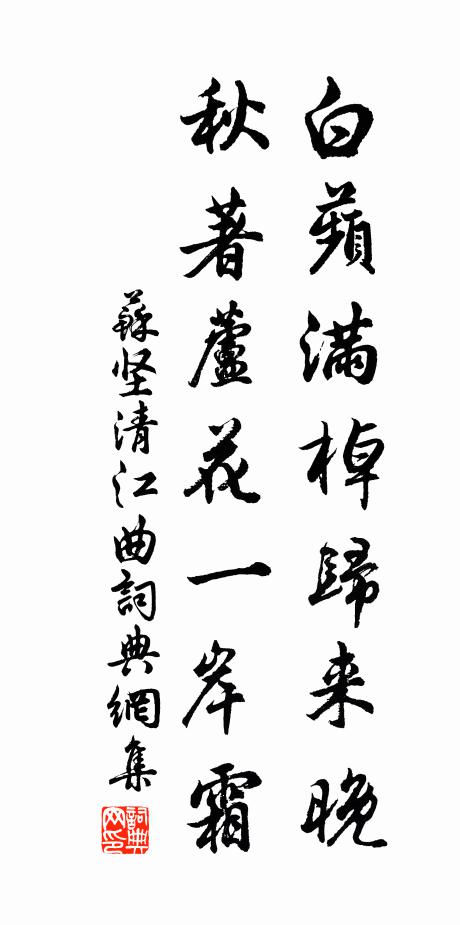 白蘋滿棹歸来晚
秋著蘆花一岸霜
蘇坚清江曲詞典網集
詞典網印